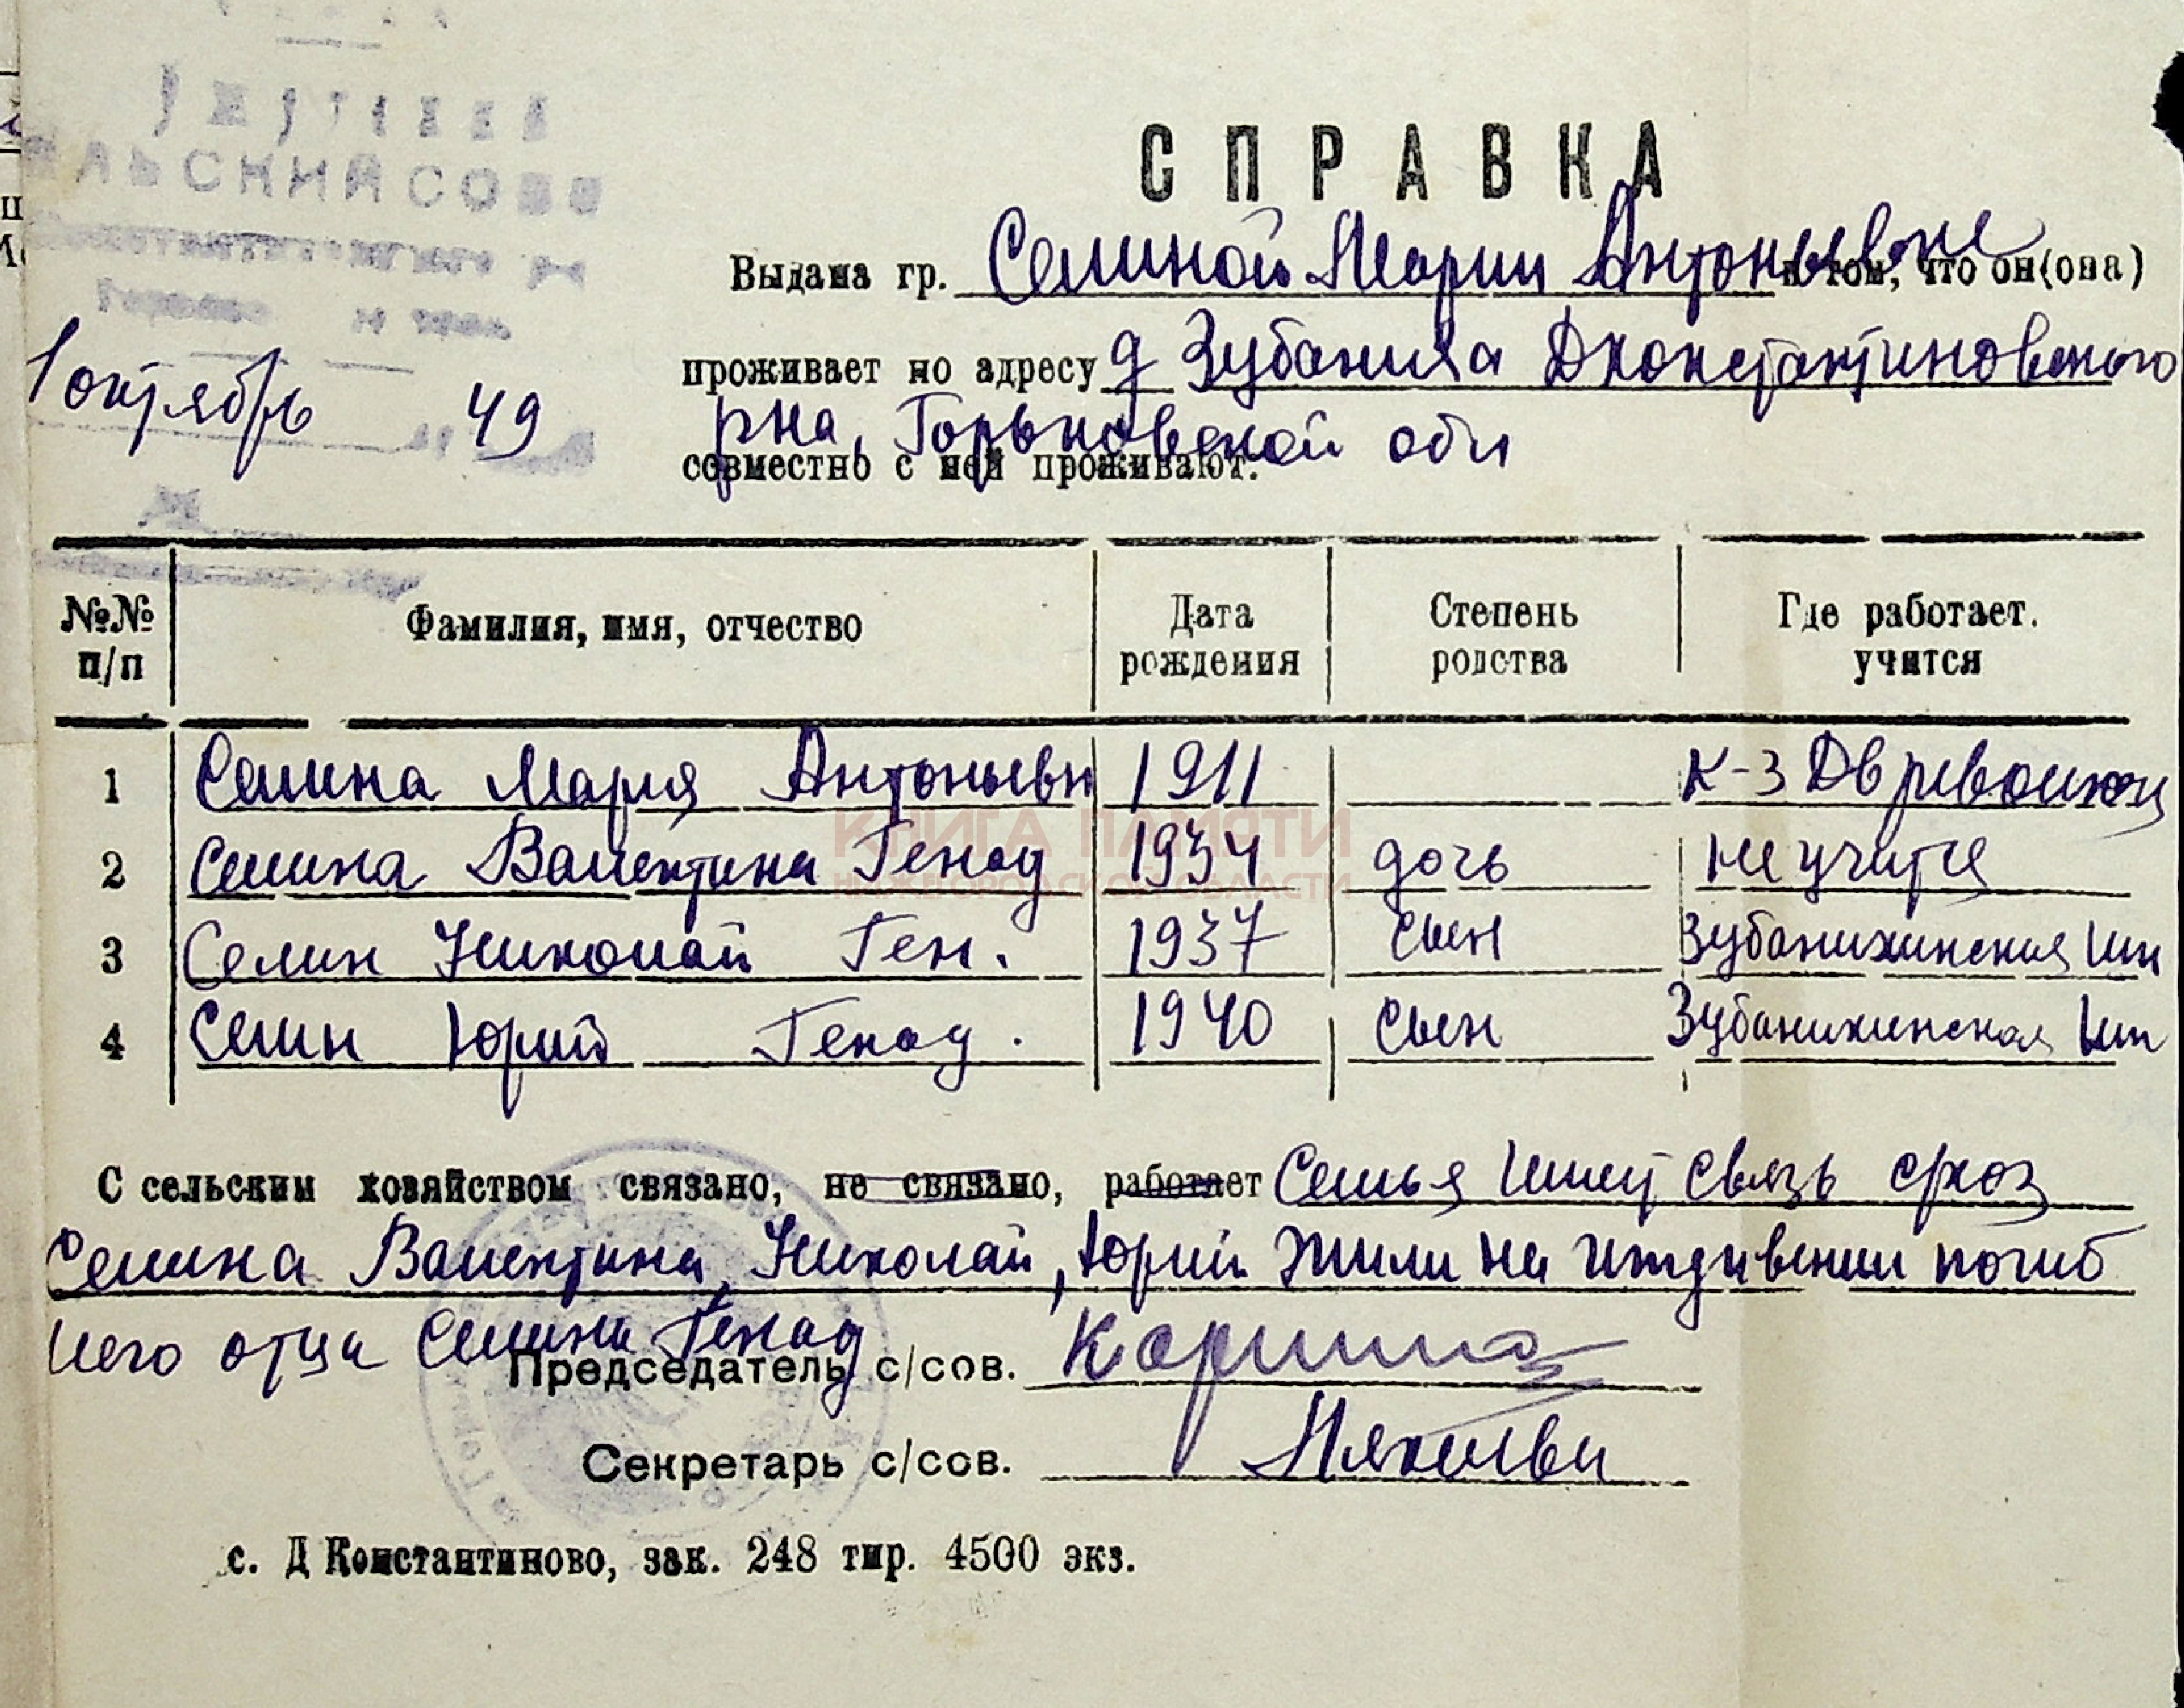 СЕЛЬСКИЙ СОВЕ
1 октябрь 49
СПРАВКА
Выдана гр. Селиной Марии Антоньевне в том, что он(она)
проживает по адресу д Зубаниха Дконстантиновского
рна, Горьковской обл
совместно с ней проживают.
№№ п/п Фамилия, имя, отчество Дата рождения Степень родства Где работает. учится
1 Селина Мария Антоньевн 1911 к-з Дв революц
2 Селина Валентина Генад 1934 дочь не учится
3 Селин Николай Ген. 1937 сын Зубанихинская шк
4 Селин Юрий Генад. 1940 сын Зубанихинская шк
КНИГА ПАМЯТИ
НИЖЕГОРОДСКОЙ ОБЛАСТИ
С сельским хозяйством связано, не связано, работает Семья имеет связь
Селина Валентина, Николай, Юрий жили на иждивении погиб
шего отца Селина Генад
Председатель с/сов.
Секретарь с/сов.
с. Д Константиново, зак. 248 тир. 4500 экз.